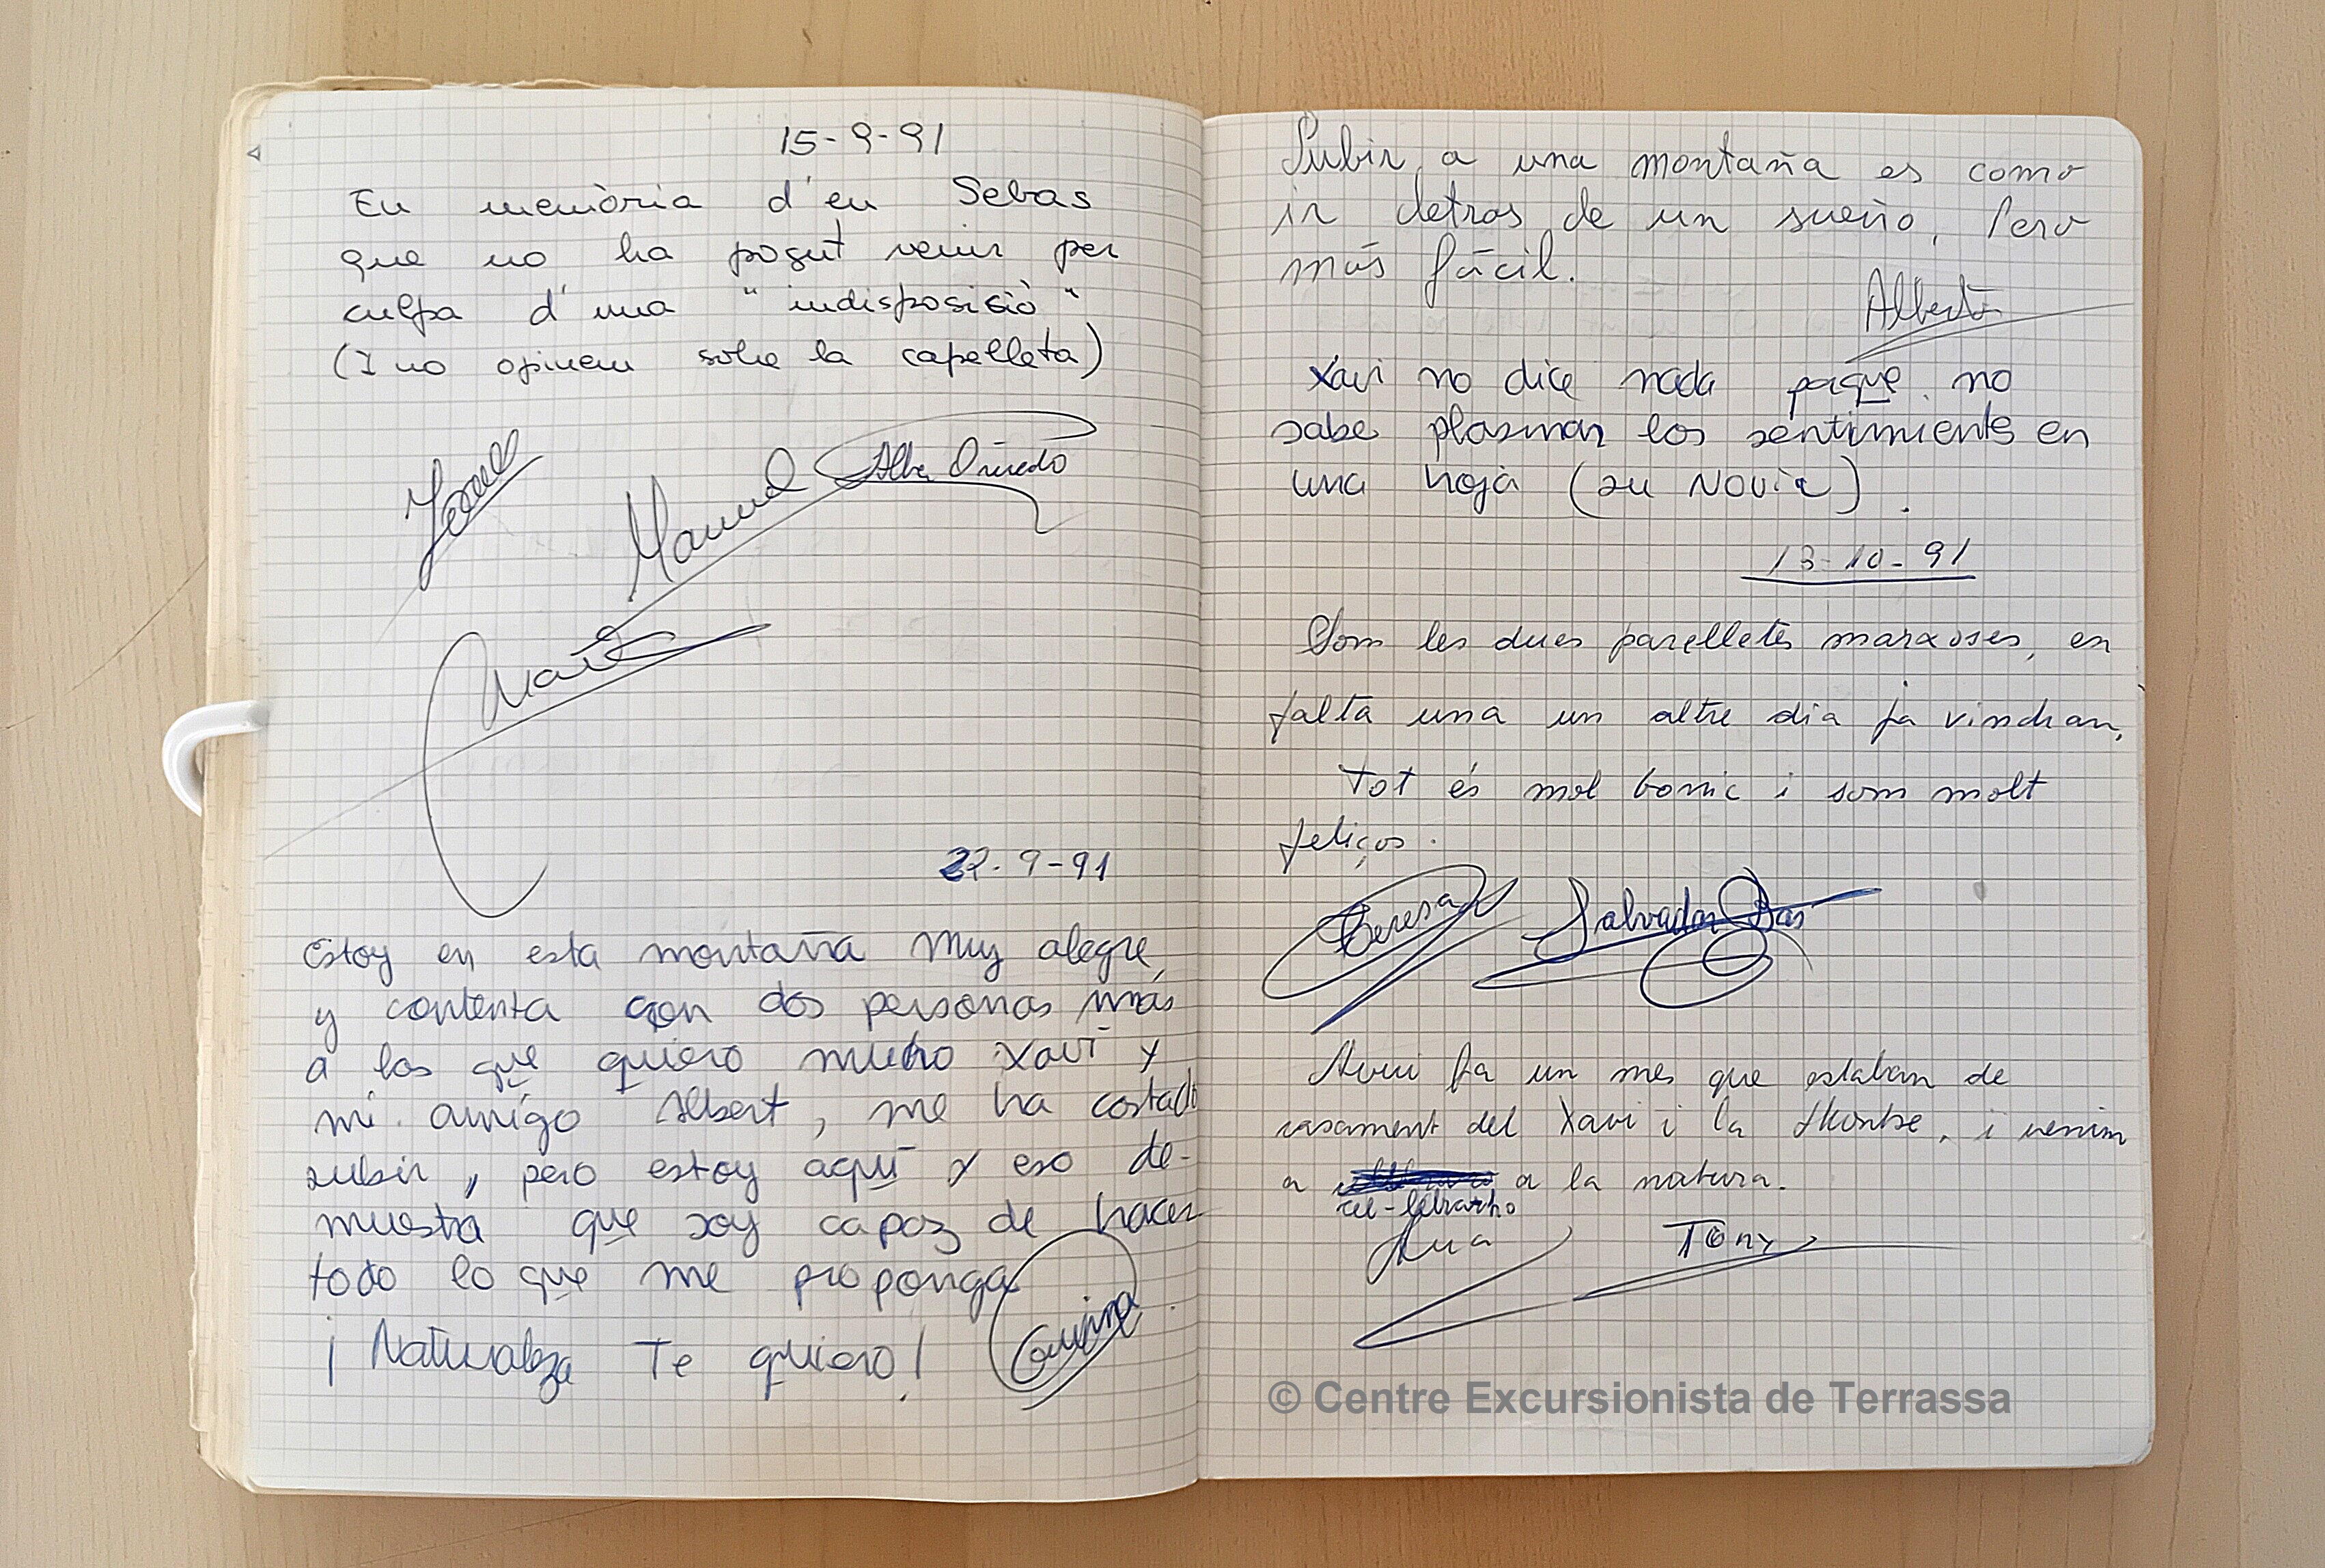 15-9-91
En memòria d'en Sebas
que no ha pogut venir per
culpa d'una "indisposisiò"
(I no opinem sobre la capelleta)
Manuel Alba Oviedo
22-9-91
Estoy en esta montaña muy alegre
y contenta con dos personas más
a los que quiero mucho Xavi y
mi amigo Albert, me ha costado
subir, pero estoy aquí y eso de-
muestra que soy capaz de hacer
todo lo que me proponga
¡Naturaleza Te quiero!
Subir a una montaña es como
ir detras de un sueño, Pero
más fácil.
Alberto
Xavi no dice nada porque no
sabe plasmar los sentimients en
una hoja (su Novia).
13-10-91
Som les dues parelletes marxoses, en
falta una un altre dia ja vindran,
Tot és mol bonic i som molt
feliços.
Teresa Salvador Bas
Avui fa un mes que estaban de
casament del Xavi i la Montse, i venim
a cel-lebrarho a la natura.
Tony
© Centre Excursionista de Terrassa